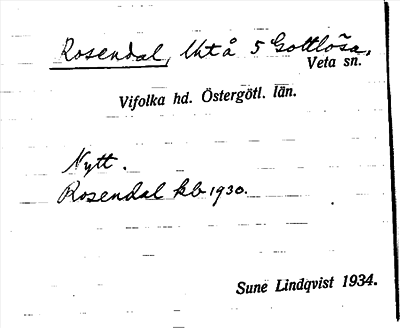 Rosendal, lht å 5 Gottlösa,
Veta sn.
Vifolka hd. Östergötl. län.
Nytt.
Rosendal kb 1930.
Sune Lindqvist 1934.